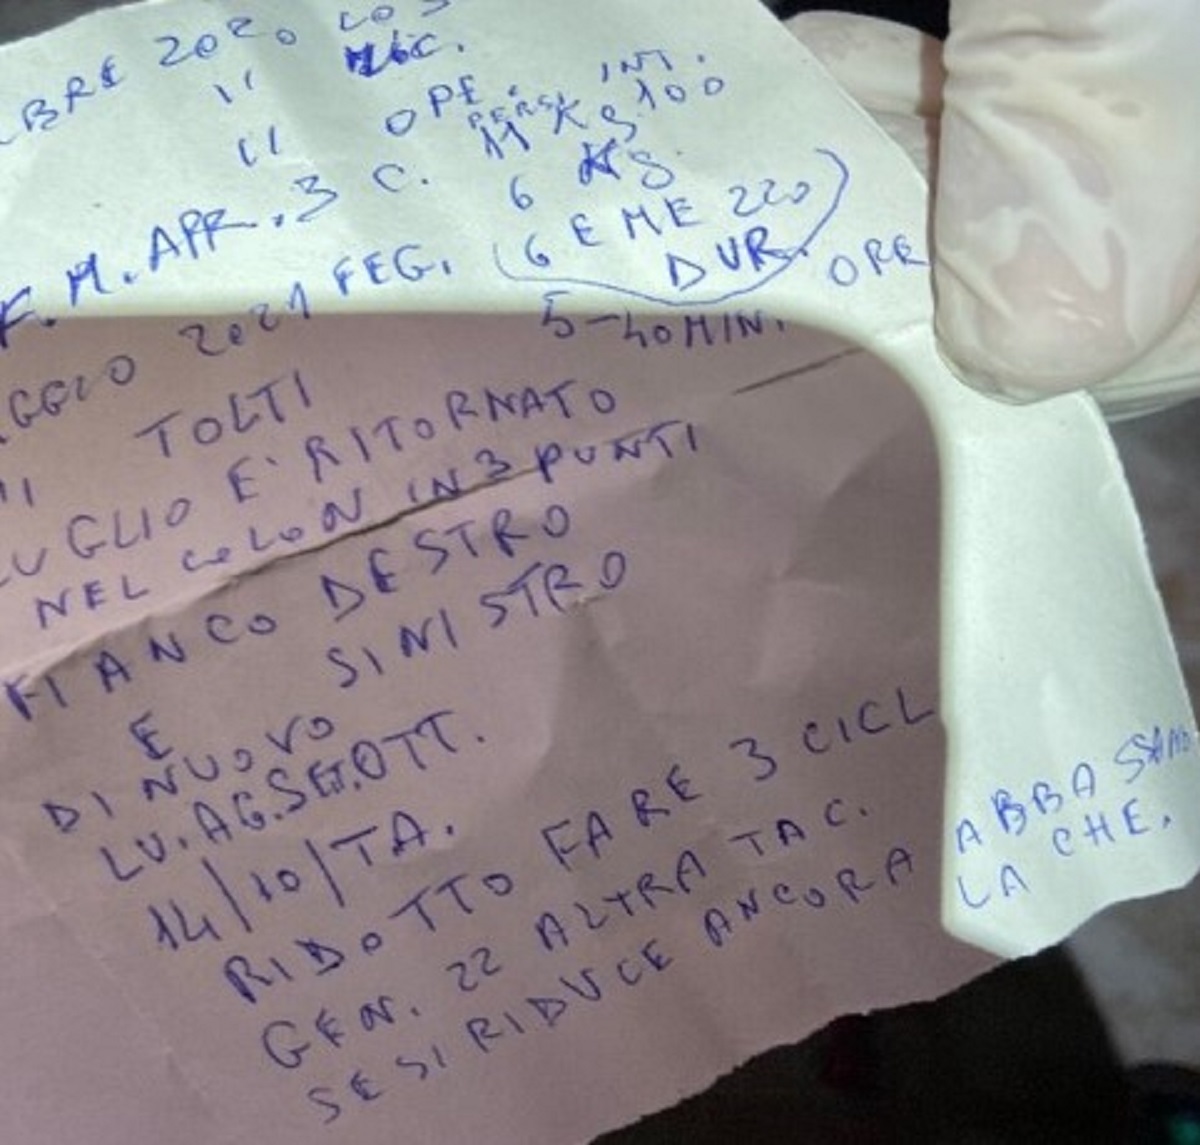 BRE 2020 LO S
" C.
" OPE. INT.
PERSI 11 KG 100
F. M. APR. 3 C. 6 KG
2021 FEG. (6 E ME 220)
DUR. ORE
5-40 MIN.
GGIO
TOLTI
UGLIO E' RITORNATO
NEL COLON IN 3 PUNTI
FIANCO DESTRO
E SINISTRO
DI NUOVO
LU. AG. SET. OTT.
14/10/TA.
RIDOTTO FARE 3 CICL
GEN. 22 ALTRA TAC.
SE SI RIDUCE ANCORA
ABBASSANO
LA CHE.